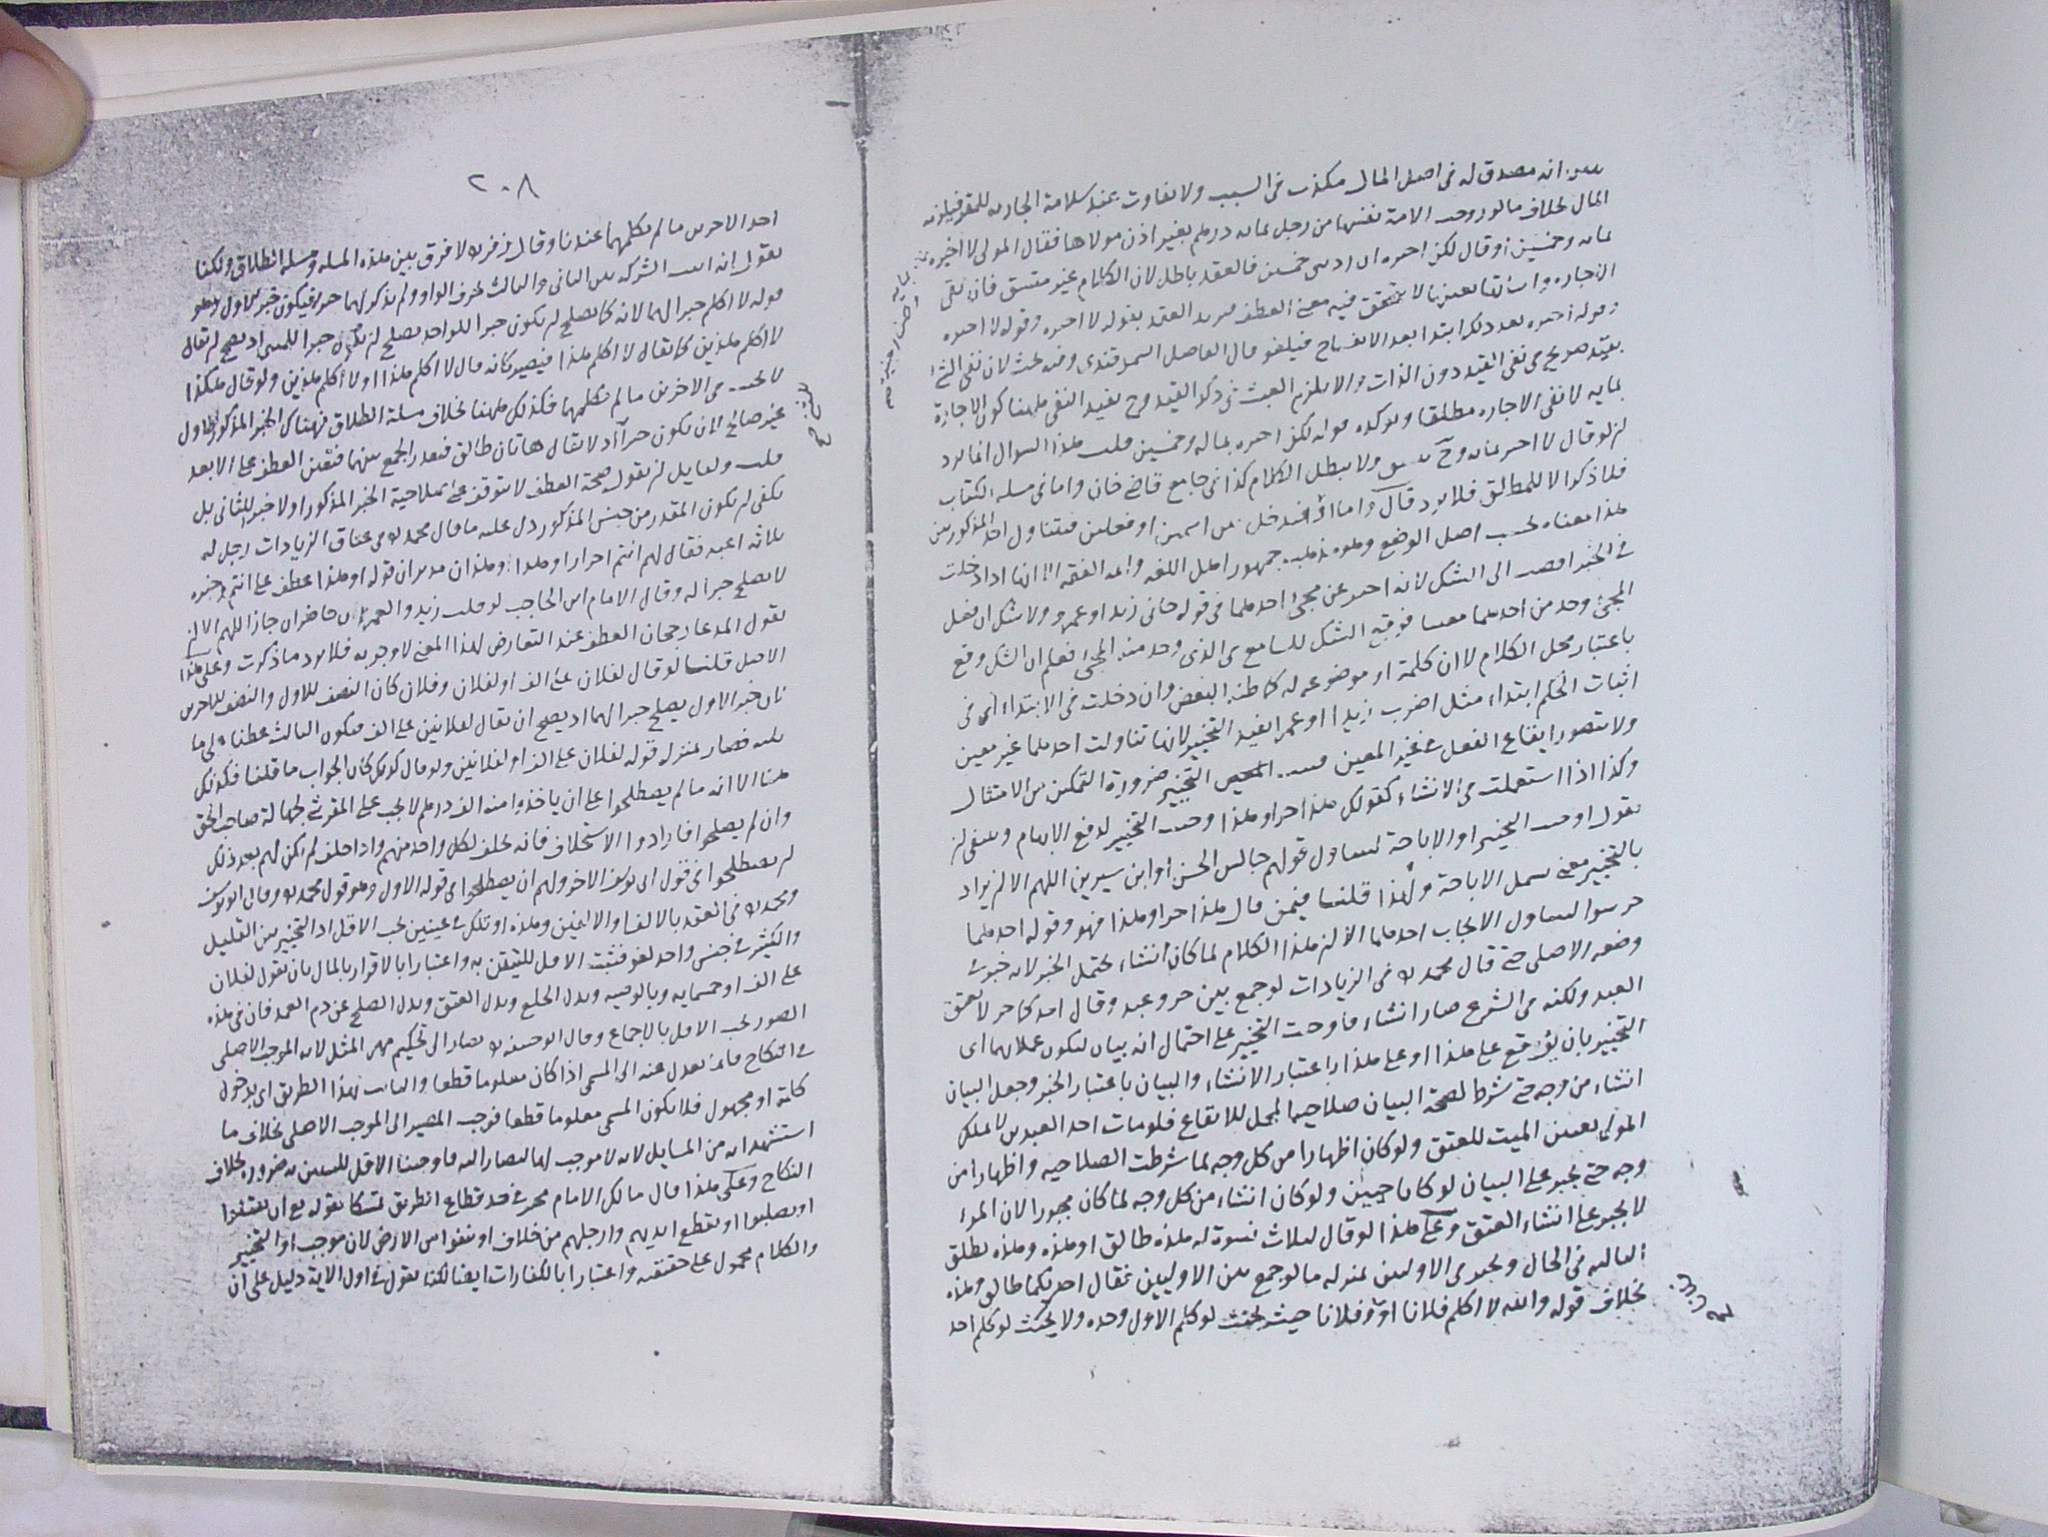 انه مصدق له في اصل المال مكذب في السبب ولا تفاوت عند سلامة الجارية للمقر فيلزمه
المال بخلاف ما لو زوجت الامة نفسها من رجل بمائة درهم بغير اذن مولاها فقال المولى لا اجيزه
بمائة وخمسين او قال لكن اجيزه ان زدتني خمسين فالعقد باطل لان الكلام غير متسق فان نفي
الاجازة واثباتها بعينها لا يتحقق فيه معنى العطف فيرتد العقد بقوله لا اجيزه وقوله لا اجيزه
وقوله اجيزه بعد ذلك ابتدا بعد الانفساخ فيلغو قال الفاضل السمرقندي وفيه بحث لان نفي الشئ
بقيد صريح في نفي القيد دون الذات والا يلزم العبث في ذكر القيد وح يفيد النفي ههنا كون الاجازة
بمايه لا نفي الاجازة مطلقا ويوكده قوله لكن اجيزه بمائة وخمسين قلت هذا السوال انما يرد
لو قال لا اجيز بمائة وح ولا يبطل الكلام كذا في جامع قاضي خان واما في مسلة الكتاب
فلا ذكر الا للمطلق فلا يرد قال واما او فيدخل بين اسمين او فعلين فيتناول احد المذكورين
هذا معناه بحسب اصل الوضع وهو مذهب جمهور اهل اللغة وايمة الفقه الا انها اذا دخلت
في الخبر افضت الى الشك لانه اخبر عن مجئ احدهما في قوله جاني زيد او عمرو ولا شك ان فعل
المجئ وجد من احدهما معينا فوقع الشك للسامع في الذي وجد منه المجئ فعلم ان الشك وقع
باعتبار محل الكلام لا ان كلمة او موضوعه له كما ظنه البعض وان دخلت في الابتداء اى في
اثبات الحكم ابتداء مثل اضرب زيدا او عمرا يفيد التخيير لانها تناولت احدهما غير معين
ولا يتصور ايقاع الفعل في غير المعين التخيير ضرورة التمكن من الامتثال
وكذا اذا استعملت في الانشاء كقولك هذا حر او هذا وجب التخيير لدفع الابهام وينبغي ان
يقول اوجب التخيير او الاباحة ليتناول قولهم جالس الحسن او ابن سيرين اللهم الا ان يراد
بالتخيير معنى يشمل الاباحة ولهذا قلنا فيمن قال هذا حر او هذا فهو وقوله احدهما
حر سوا لتناول الايجاب احدهما الا ان هذا الكلام لما كان انشاء يحتمل الخبر لانه خبر في
وضعه الاصلي حتى قال محمد في الزيادات لو جمع بين حر وعبد وقال احدكما حر لا يعتق
العبد ولكنه في الشرع صار انشاء فاوجب التخيير على احتمال انه بيان ليكون عملا بهما اى
التخيير بان يوقع على هذا او على هذا باعتبار الانشاء والبيان باعتبار الخبر وجعل البيان
انشاء من وجه حتى شرط لصحة البيان صلاحية المحل للايقاع فلو مات احد العبدين لا يملك
المولى تعيين الميت للعتق ولو كان اظهارا من كل وجه لما شرطت الصلاحيه واظهارا من
وجه حتى يجبر على البيان لو كانا حيين ولو كان انشاء من كل وجه لما كان مجبورا لان المرء
لا يجبر على انشاء العتق وعلى هذا لو قال لثلاث نسوة له هذه طالق او هذه وهذه تطلق
الثالثة في الحال ويخير في الاوليين بمنزلة ما لو جمع بين الاوليين فقال احديكما طالق وهذه
بخلاف قوله والله لا اكلم فلانا او فلانا وفلانا حيث يحنث لو كلم الاول وحده ولا يحنث لو كلم احد
٢٠٨
احد الاخرين ما لم يكلمهما عندنا وقال زفر لا فرق بين هذه المسلة ومسلة الطلاق ولكنا
نقول انه اثبت الشركة بين الثاني والثالث بحرف الواو ولم يذكر لهما خبرا فيكون خبر الاول وهو
قوله لا اكلم خبرا لهما لانه كما يصلح ان يكون خبرا للواحد يصلح ان يكون خبرا للمثنى اذ يصح ان يقال
لا اكلم هذين كما يقال لا اكلم هذا فيصير كانه قال لا اكلم هذا او لا اكلم هذين ولو قال هكذا
لا يحنث في الاخرين ما لم يكلمهما فكذلك ههنا بخلاف مسلة الطلاق فهناك الخبر المذكور للاول
غير صالح لان يكون خبرا اذ لا يقال هاتان طالق فتعذر الجمع بينهما فتعين العطف على الابعد
قلت ولقايل ان يقول صحة العطف لا يتوقف على صلاحية الخبر المذكور اولا خبرا للثاني بل
يكفي ان يكون المقدر من جنس المذكور دل عليه ما قال محمد في عتاق الزيادات رجل له
ثلاثة اعبد فقال لهم انتم احرار او هذا وهذان مدبران قوله او هذا عطف على انتم وخبره
لا يصلح خبرا له وقال الامام ابن الحاجب لو قلت زيد والعمران حاضران جاز اللهم الا ان
نقول المدعا رجحان العطف عند التعارض لهذا المعنى لا وجوبه فلا يرد ما ذكرت وعلى هذا
الاصل قلنا لو قال لفلان على الف او لفلان وفلان كان النصف للاول والنصف للاخرين
لان خبر الاول يصلح خبرا لهما اذ يصلح ان يقال لفلانين على الف فيكون الثالث عطفا على ما
يليه فصار بمنزلة قوله لفلان على الف او لفلانين ولو قال كذلك كان الجواب ما قلنا فكذلك
هنا الا انه ما لم يصطلحوا على ان ياخذوا منه الف درهم لا يجب على المقر شئ لجهالة صاحب الحق
وان لم يصلحوا فارادوا الاستحلاف فانه يحلف لكل واحد منهم واذا حلف لم يكن لهم بعد ذلك
ان يصطلحوا في قول ابي يوسف الاخر ولهم ان يصطلحوا في قوله الاول وهو قول محمد وقال ابو يوسف
ومحمد في العقد بالالف او الالفين وهذه او تلك في عينين يجب الاقل اذ التخيير بين القليل
والكثير في جنس واحد لغو فثبت الاقل للتيقن به واعتبارا بالاقرار بالمال بان يقول لفلان
على الف او خمسمايه وبالوصيه وبدل الخلع وبدل العتق وبدل الصلح عن دم العمد فان في هذه
الصور يجب الاقل بالاجماع وقال ابو حنيفة يصار الى تحكيم مهر المثل لانه الموجب الاصلي
في النكاح فانما يعدل عنه الى المسمى اذا كان معلوما قطعا والثابت بهذا الطريق اى بدخول
كلمة او مجهول فلا يكون المسمى معلوما قطعا فوجب المصير الى الموجب الاصلي بخلاف ما
استشهدا به من المسايل لانه لا موجب لها ليصار اليه فاوجبنا الاقل للتيقن به ضرورة بخلاف
النكاح وعلى هذا قال مالك الامام مخير في حد قطاع الطريق تمسكا بقوله تع ان يقتلوا
او يصلبوا او تقطع ايديهم وارجلهم من خلاف او ينفوا من الارض لان موجب او التخيير
والكلام محمول على حقيقته واعتبارا بالكفارات ايضا لكنا نقول في اول الاية دليل على ان